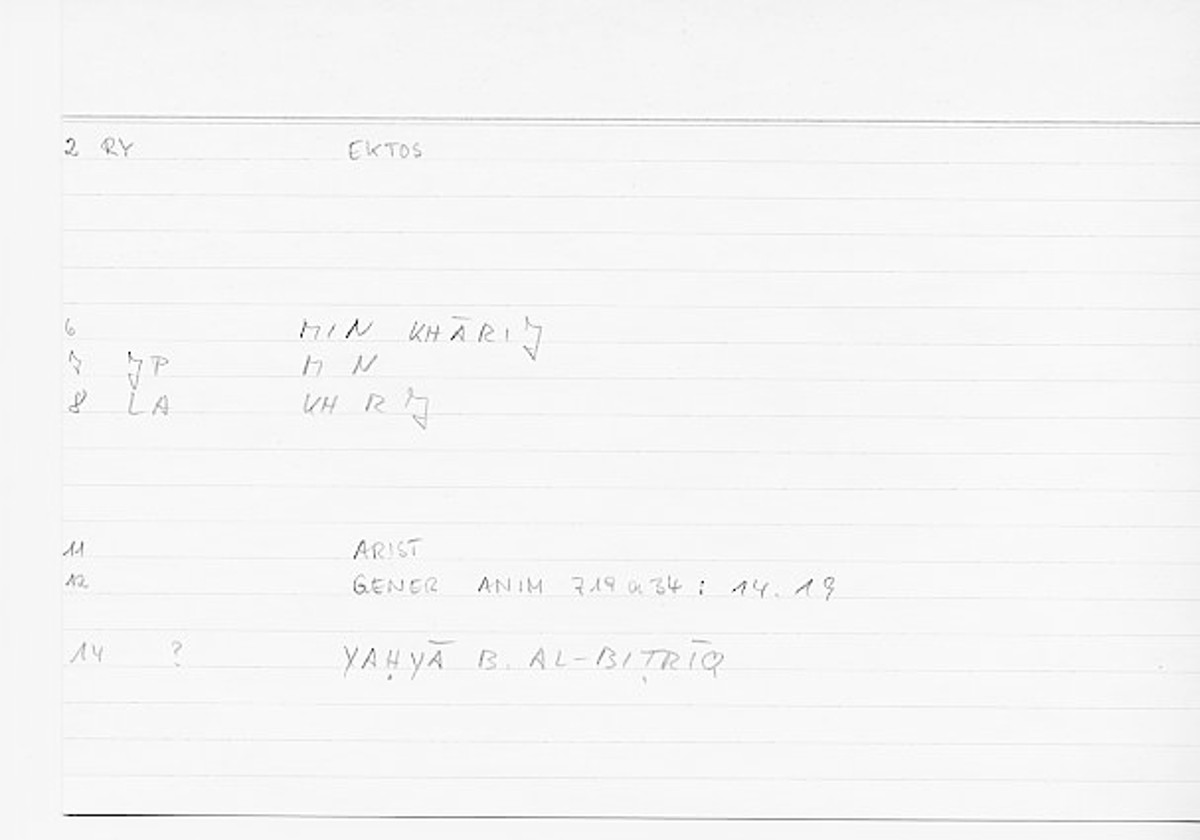 2 RY EKTOS
6 MIN KHĀRIJ
7 JP M N
8 LA KH R J
11 ARIST
12 GENER ANIM 719 a 34 : 14.19
14 ? YAḤYĀ B. AL-BIṬRĪQ